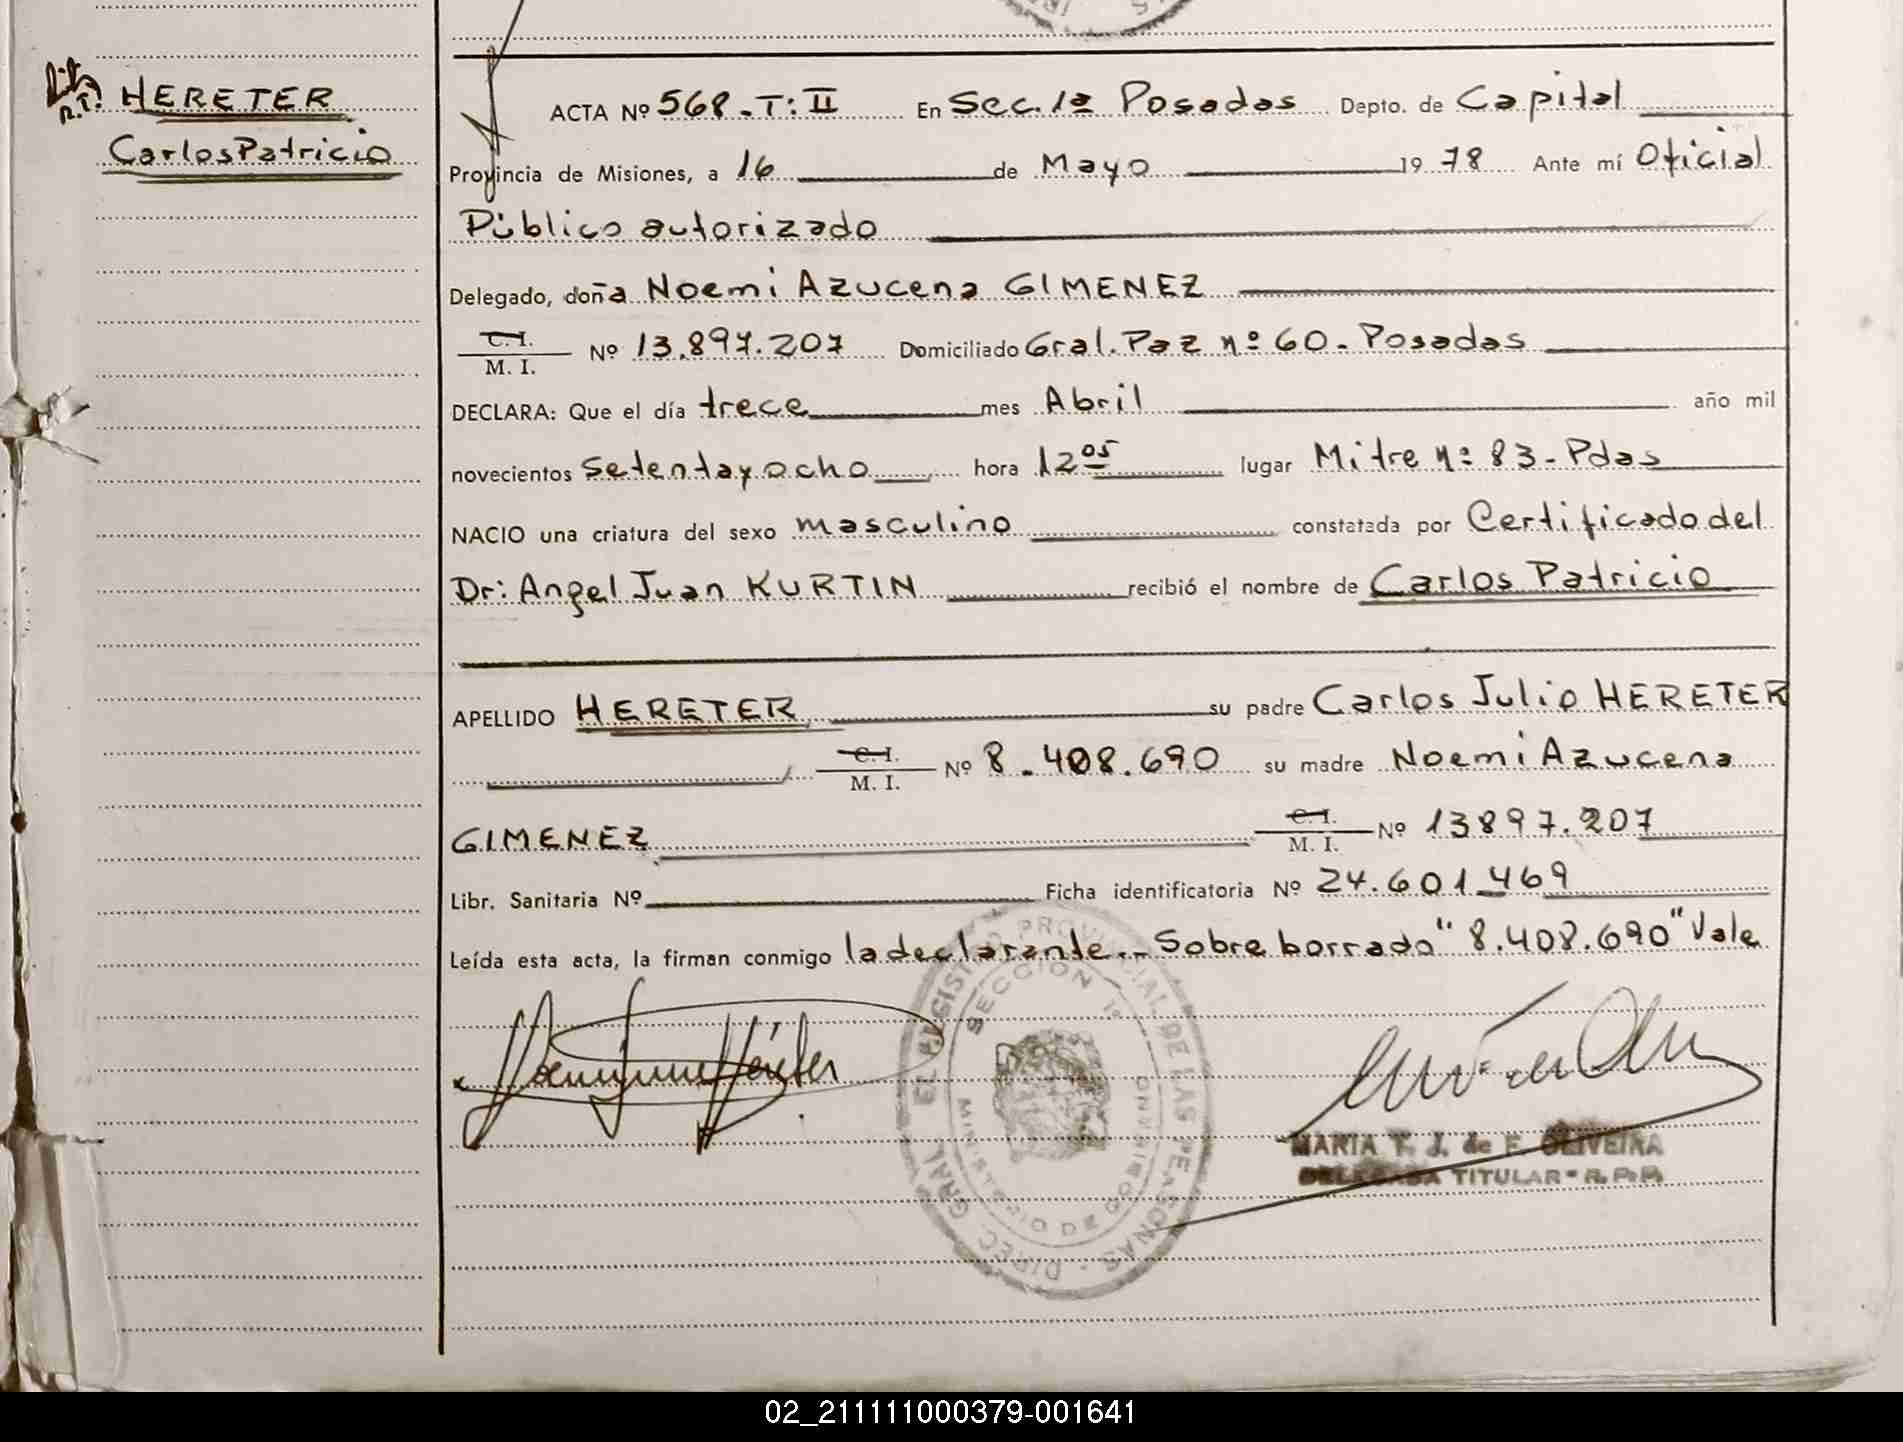 HERETER
R.T.
Carlos Patricio
ACTA Nº 568 - T: II En Sec. 1a Posadas Depto. de Capital
Provincia de Misiones, a 16 de Mayo 1978 Ante mí Oficial
Público autorizado
Delegado, doña Noemi Azucena GIMENEZ
C. I.
M. I. Nº 13.897.207 Domiciliado Gral. Paz nº 60 - Posadas
DECLARA: Que el día trece mes Abril año mil
novecientos Setenta y ocho hora 12 05 lugar Mitre nº 83 - Pdas
NACIO una criatura del sexo masculino constatada por Certificado del
Dr: Angel Juan KURTIN recibió el nombre de Carlos Patricio
APELLIDO HERETER su padre Carlos Julio HERETER
C. I.
M. I. Nº 8.408.690 su madre Noemi Azucena
GIMENEZ C. I.
M. I. Nº 13897.207
Libr. Sanitaria Nº Ficha identificatoria Nº 24.601.469
Leída esta acta, la firman conmigo la declarante.- Sobre borrado "8.408.690" Vale
DIREC GRAL EL REGISTRO PROVINCIAL DE LAS PERSONAS
SECCION 1º
MINISTERIO DE GOBIERNO
MARIA T. J. de F. OLIVEIRA
DELEGADA TITULAR - R.P.P.
02_211111000379-001641